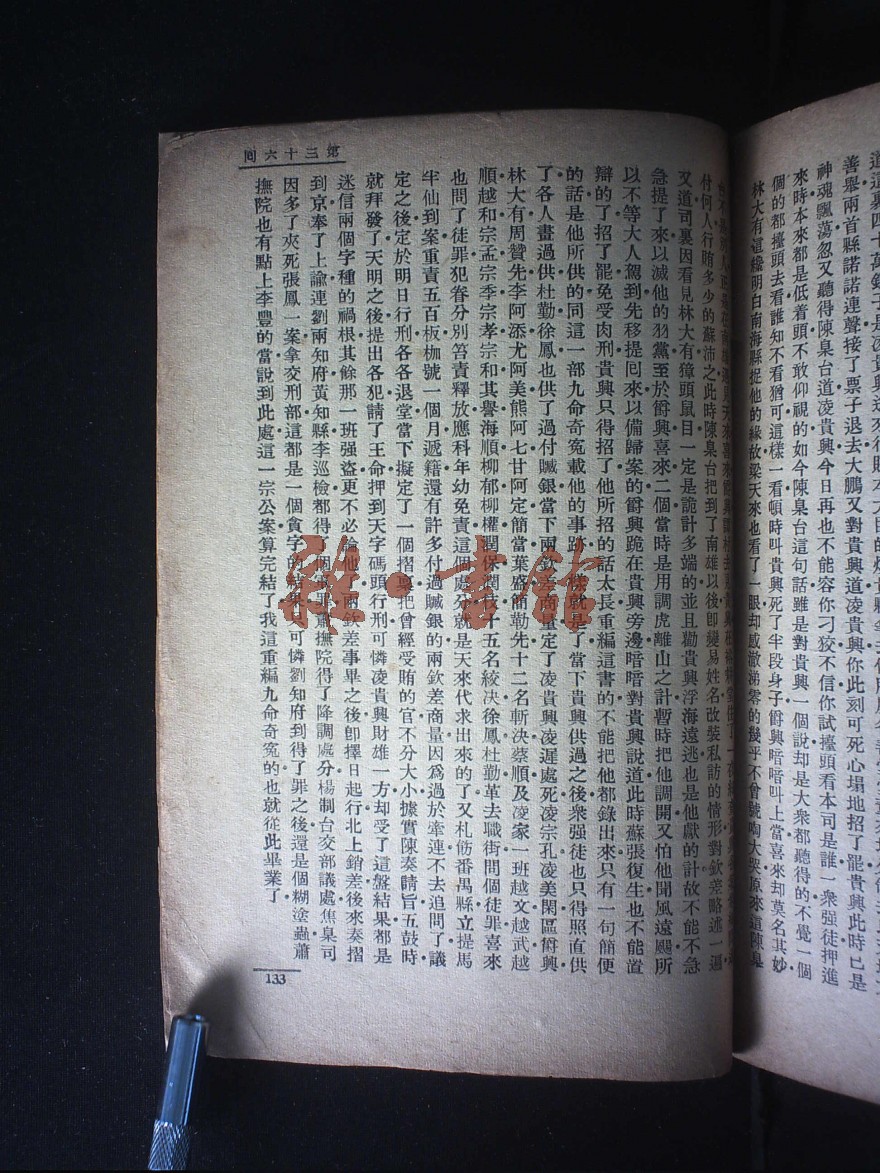 道這裏四十萬銀子是凌貴興送來行賄本大臣的
善舉兩首縣諾諾連聲接了票子退去大鵬又對貴興道凌貴興你此刻可死心塌地招了罷貴興此時已是
神魂飄蕩忽又聽得陳臬台道凌貴興今日再也不能容你刁狡不信你試擡頭看本司是誰一衆強徒押進
來時本來都是低着頭不敢仰視的如今陳臬台這句話雖是對貴興一個說却是大衆都聽得的不覺一個
個的都擡頭去看誰知不看猶可這樣一看頓時叫貴興死了半段身子爵興暗暗叫上當喜來却莫名其妙
林大有這纔明白南海縣捉他的緣故梁天來也看了一眼却感激涕零的幾乎不曾號啕大哭原來這陳臬
付何人行賄多少的蘇沛之此時陳臬台把到了南雄以後卽變易姓名改裝私訪的情形對欽差略述一遍
又道司裏因看見林大有獐頭鼠目一定是詭計多端的並且勸貴興浮海遠逃也是他獻的計故不能不急
急提了來以滅他的羽黨至於爵興喜來二個當時是用調虎離山之計暫時把他調開又怕他聞風遠颺所
以不等大人駕到先移提囘來以備歸案的爵興跪在貴興旁邊暗暗對貴興說道此時蘇張復生也不能置
辯的了招了罷免受肉刑貴興只得招了他所招的話太長重編這書的不能把他都錄出來只有一句簡便
的話是他所供的同這一部九命奇寃載他的事跡一樣就是了當下貴興供過之後衆強徒也只得照直供
了各人畫過供杜勤徐鳳也供了過付贓銀當下兩欽差商量定了凌貴興凌遲處死凌宗孔凌美閑區爵興
林大有周贊先李阿添尤阿美熊阿七甘阿定簡當葉盛簡勒先十二名斬決蔡順及凌家一班越文越武越
順越和宗孟宗季宗孝宗和其譽海順柳郁柳權潤保潤枝十五名絞决徐鳳杜勤革去職銜問個徒罪喜來
也問了徒罪犯眷分別笞責釋放應科年幼免責這個處分就是天來代求出來的了又札飭番禺縣立提馬
半仙到案重責五百板枷號一個月遞籍還有許多付過贓銀的兩欽差商量因爲過於牽連不去追問了議
定之後定於明日行刑各各退堂當下擬定了一個摺稟把曾經受賄的官不分大小據實陳奏請旨五鼓時
就拜發了天明之後提出各犯請了王命押到天字碼頭行刑可憐凌貴興財雄一方却受了這盤結果都是
迷信兩個字種的禍根其餘那一班強盜更不必論他了兩欽差事畢之後卽擇日起行北上銷差後來奏摺
到京奉了上諭連劉兩知府黃知縣李巡檢都得了個革罪蕭撫院得了降調處分楊制台交部議處焦臬司
因多了夾死張鳳一案拿交刑部這都是一個貪字的結果只可憐劉知府到得了罪之後還是個糊塗蟲蕭
撫院也有點上李豐的當說到此處這一宗公案算完結了我這重編九命奇寃的也就從此畢業了
第三十六囘
133
雜·書館